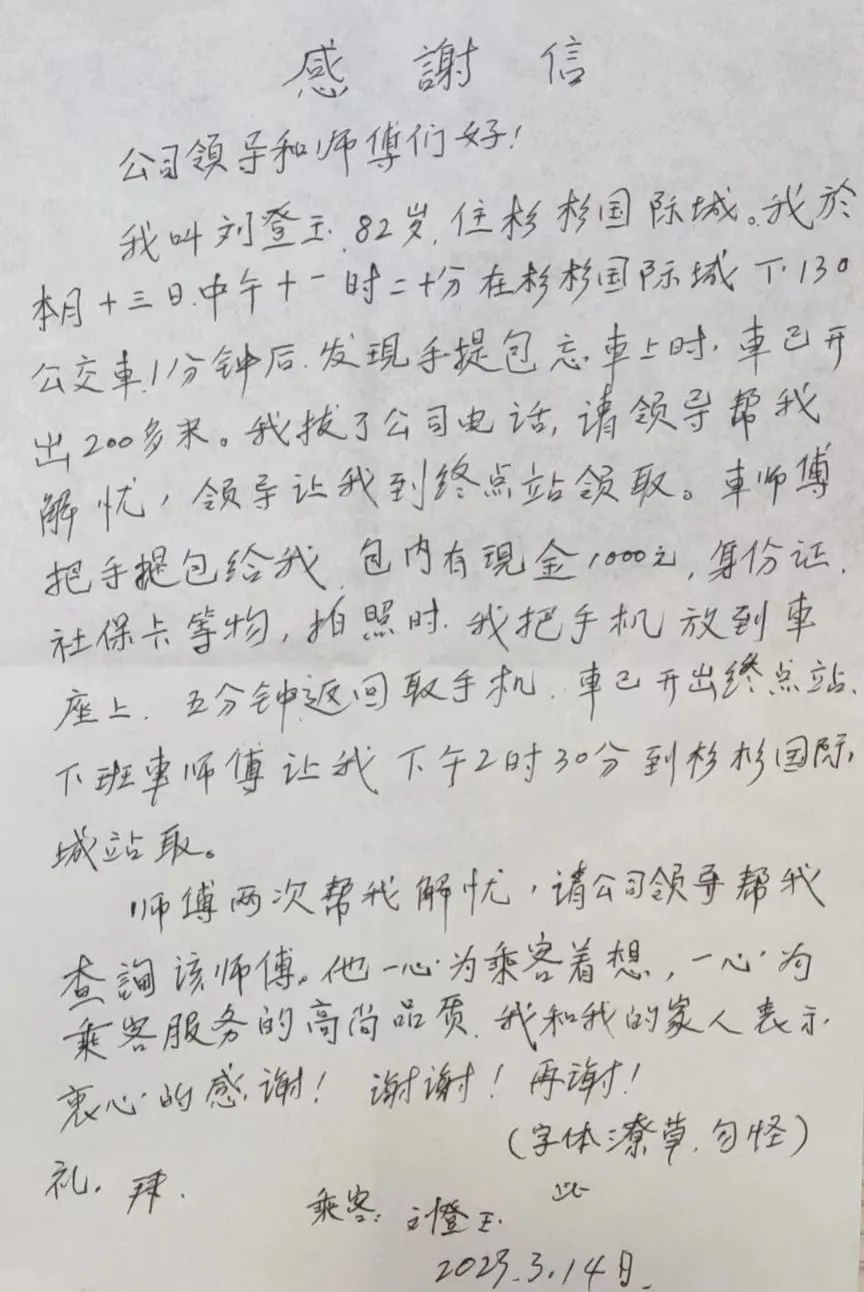 感 謝 信
公司領导和师傅们好!
我叫刘登玉.82岁,住杉杉国际城。我於
本月十三日.中午十一时二十分在杉杉国际城下130
公交車,1分钟后.发現手提包忘車上时.車已开
出200多米。我拔了公司电话,请领导帮我
解忧,领导让我到终点站领取。車师傅
把手提包给我.包内有現金1000元,身份证.
社保卡等物,拍照时.我把手机放到車
座上.五分钟返回取手机.車已开出终点站.
下班車师傅让我下午2时30分到杉杉国际
城站取。
师傅两次帮我解忧,请公司领导帮我
查詢该师傅。他一心为乘客着想,一心为
乘客服务的高尚品质.我和我的家人表示
衷心的感谢! 谢谢! 再谢!
(字体潦草.勿怪)
礼.拜.
乘客: 刘登玉.
2023.3.14日.